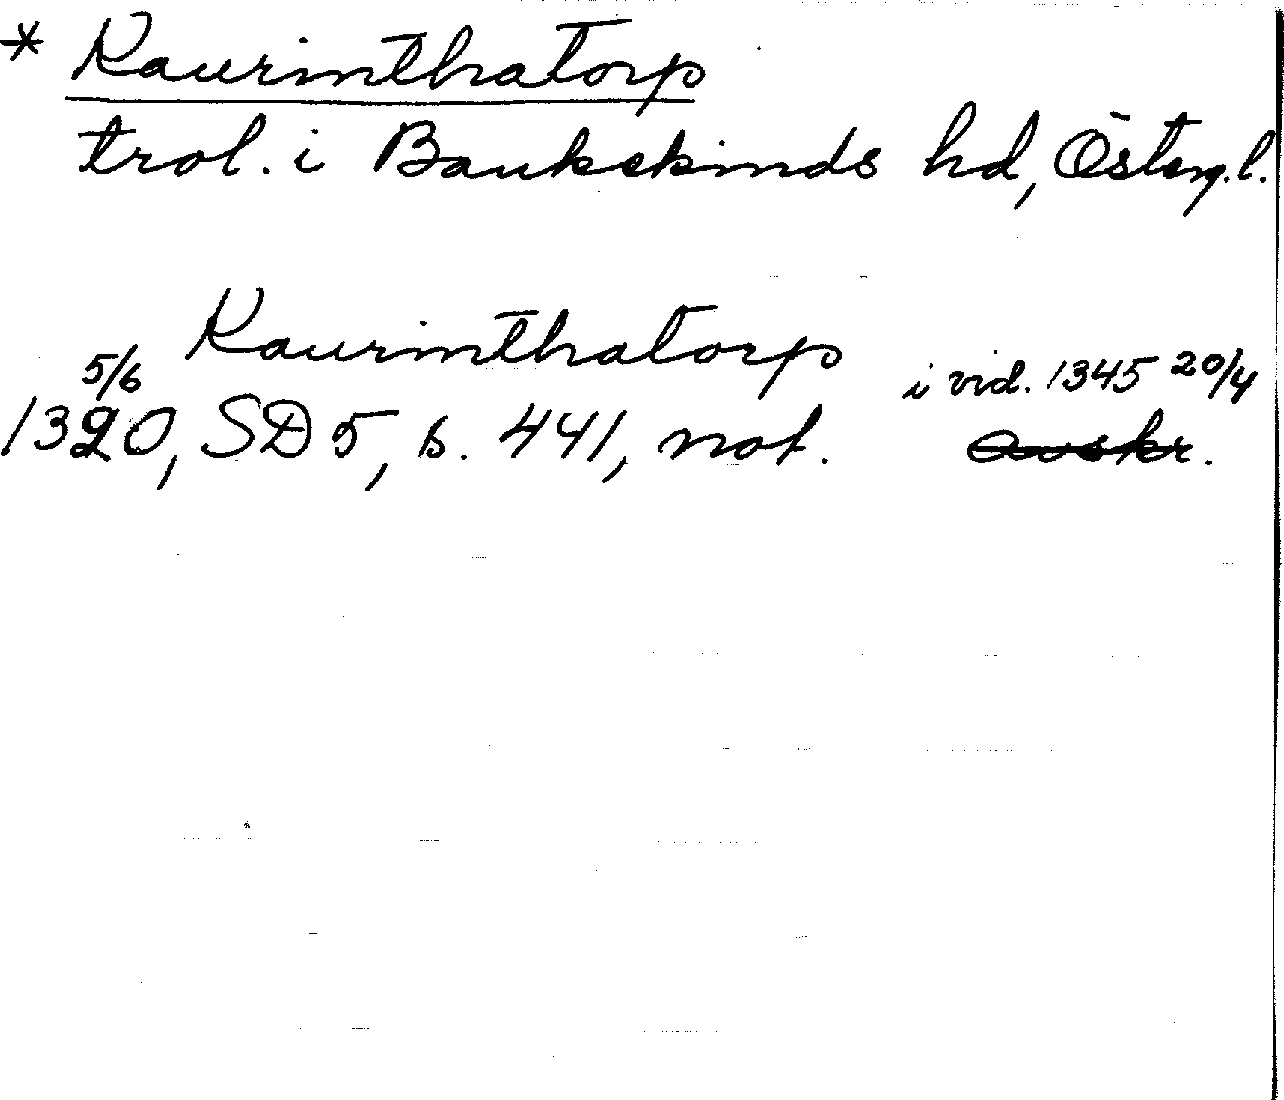 * Raurinthatorp
trol. i Bankekinds hd, Österg.l.
Raurinthatorp i vid. 1345 20/4
5/6
1320, SD 5, s. 441, not. avskr.